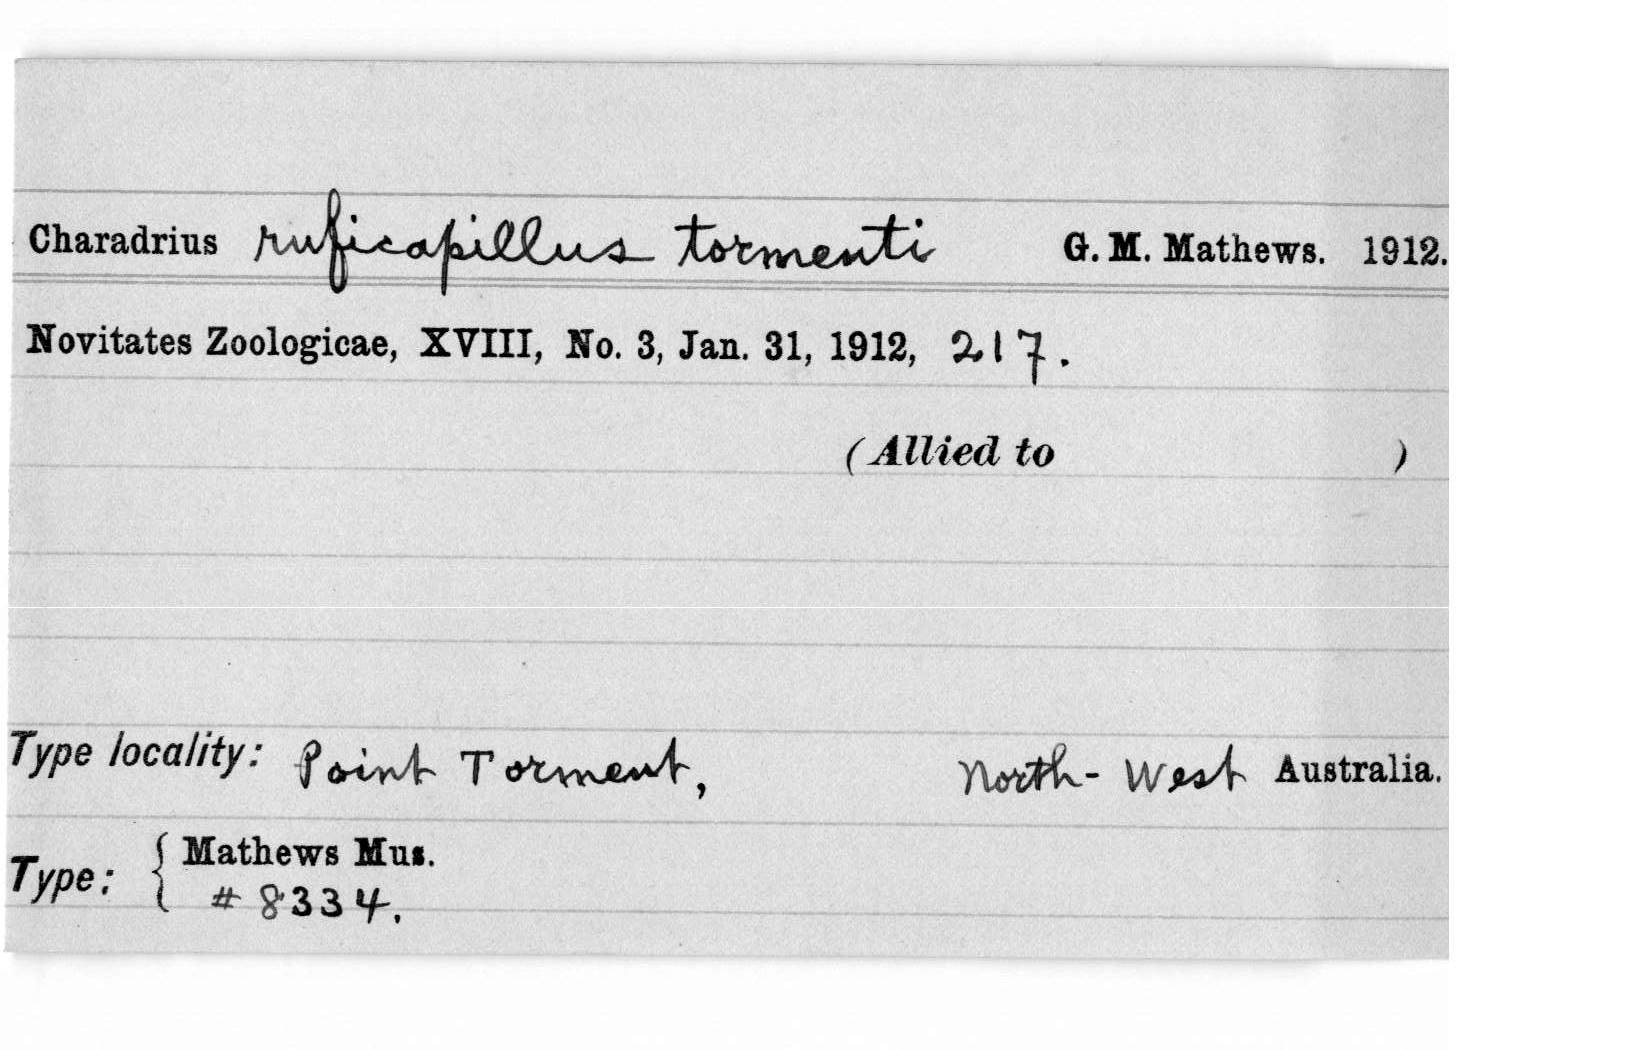 Charadrius ruficapillus tormenti G. M. Mathews. 1912.
Novitates Zoologicae, XVIII, No. 3, Jan. 31, 1912, 217.
(Allied to )
Type locality: Point Torment, North-West Australia.
Type: { Mathews Mus.
# 8334.